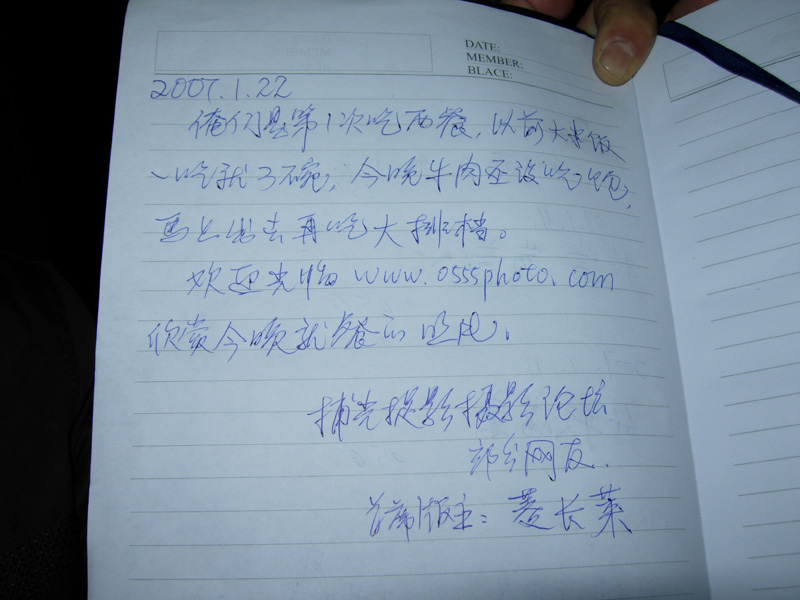 DATE:
MEMBER:
BLACE:
2007.1.22
俺们是第1次吃西餐，以前大米饭
一吃就3碗，今晚牛肉还没吃饱，
马上出去再吃大排档。
欢迎光临www.0555photo.com
欣赏今晚就餐的照片。
捕光捉影摄影论坛
部分网友.
首席版主：姜长荣